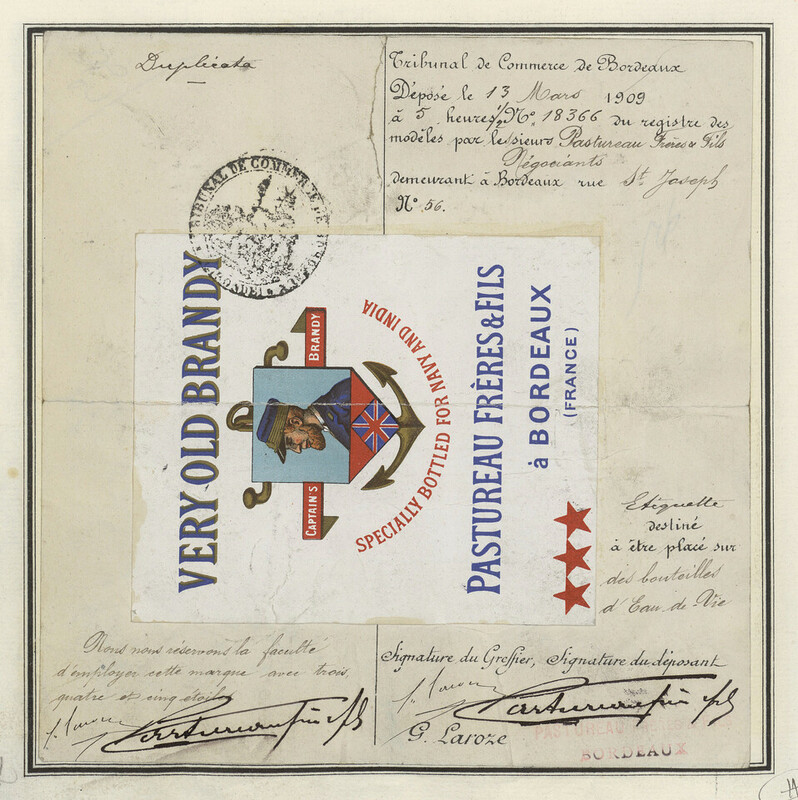 Duplicata
Tribunal de Commerce de Bordeaux
Déposé le 13 Mars 1909
à 5 heures 1/2 N° 18366 du registre des
modèles par les sieurs Pastureau Frères & Fils
Négociants
demeurant à Bordeaux rue St Joseph
N° 56.
TRIBUNAL DE COMMERCE DE BORDEAUX
(GIRONDE)
VERY OLD BRANDY
CAPTAIN'S BRANDY
SPECIALLY BOTTLED FOR NAVY AND INDIA
PASTUREAU FRÈRES & FILS
à BORDEAUX
(FRANCE)
Etiquette
destiné
à être placé sur
des bouteilles
d'Eau-de-Vie
Nous nous réservons la faculté
d'employer cette marque avec trois,
quatre et cinq étoiles
Signature du Greffier, Signature du déposant
G. Laroze
PASTUREAU
BORDEAUX